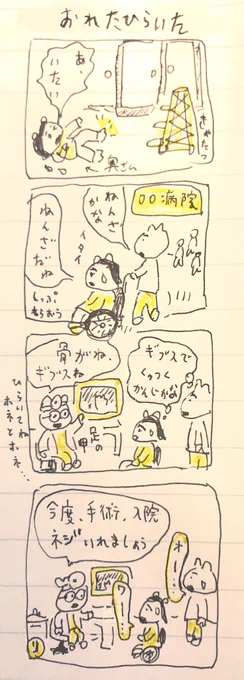 おれたひらいた
あ、
いたい
きゃたつ
←奥さん
〇〇病院
ねんざ
かな
イタイ
ねんざ
だね
しっぷ
もらおう
ギプスで
くっつく
かんじかな
骨がね、
ギプスね
足の
甲
ひらいてね
ホネとホネ…
今度、手術、入院
ネジいれましょう
オー
ワー